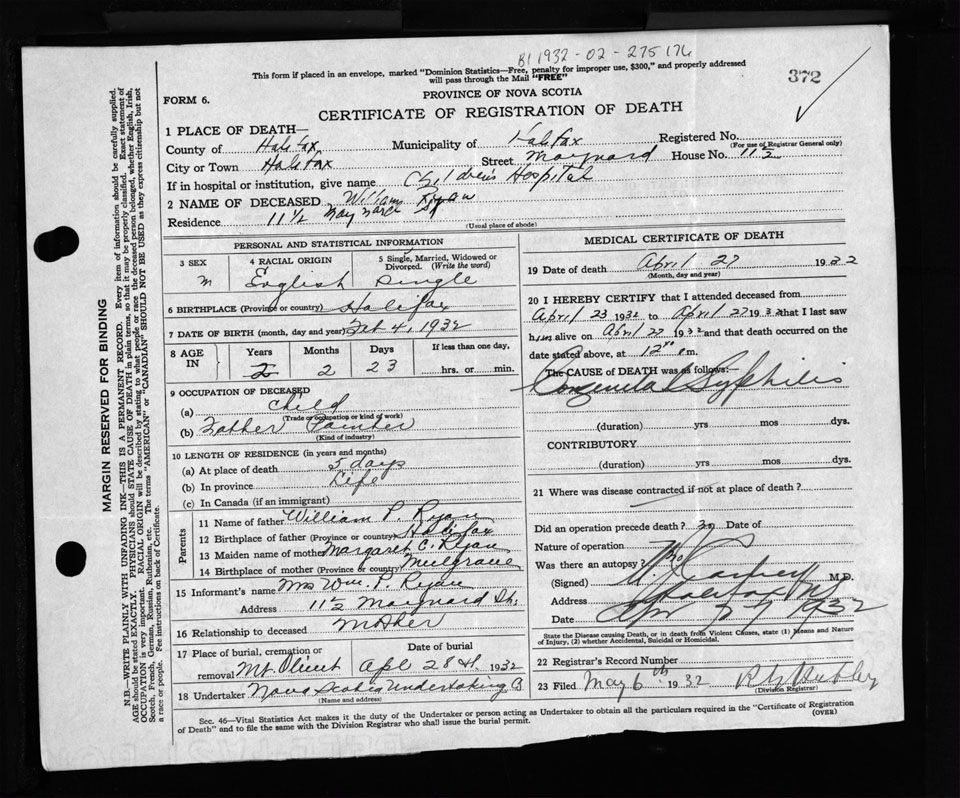 B1 1932 - 02 - 275176
This form if placed in an envelope, marked "Dominion Statistics—Free, penalty for improper use, $300," and properly addressed
will pass through the Mail "FREE"
372
PROVINCE OF NOVA SCOTIA
FORM 6.
CERTIFICATE OF REGISTRATION OF DEATH
1 PLACE OF DEATH—
County of Halifax Municipality of Halifax Registered No.
(For use of Registrar General only)
City or Town Halifax Street Maynard House No. 11½
If in hospital or institution, give name Children's Hospital
2 NAME OF DECEASED William Ryan
Residence 11½ Maynard St
(Usual place of abode)
PERSONAL AND STATISTICAL INFORMATION
3 SEX 4 RACIAL ORIGIN 5 Single, Married, Widowed or
Divorced. (Write the word)
m English Single
6 BIRTHPLACE (Province or country) Halifax
7 DATE OF BIRTH (month, day and year) Feb 4, 1932
8 AGE IN Years Months Days If less than one day,
2 23 hrs. or min.
9 OCCUPATION OF DECEASED
(a) Child
(Trade or occupation or kind of work)
(b) Father Painter
(Kind of industry)
10 LENGTH OF RESIDENCE (in years and months)
(a) At place of death 5 days
(b) In province Life
(c) In Canada (if an immigrant)
Parents
11 Name of father William P. Ryan
12 Birthplace of father (Province or country) Halifax
13 Maiden name of mother Margaret C. Ryan
14 Birthplace of mother (Province or country) Mulgrave
15 Informant's name Mrs Wm. P. Ryan
Address 11½ Maynard St.
16 Relationship to deceased Mother
17 Place of burial, cremation or Date of burial
removal Mt Olivet Apl 28th 1932
18 Undertaker Nova Scotia Undertaking
(Name and address)
MEDICAL CERTIFICATE OF DEATH
19 Date of death April 27 1932
(Month, day and year)
20 I HEREBY CERTIFY that I attended deceased from
April 23 1932 to April 27 1932 that I last saw
him alive on April 27 1932 and that death occurred on the
date stated above, at 12 m.
The CAUSE of DEATH was as follows:
Congenital Syphilis
(duration) yrs mos dys.
CONTRIBUTORY
(duration) yrs mos dys.
21 Where was disease contracted if not at place of death?
Did an operation precede death? no Date of
Nature of operation
Was there an autopsy? no
(Signed) M.D.
Address Halifax
Date Apr 27 1932
State the Disease causing Death, or in death from Violent Causes, state (1) Means and Nature
of Injury, (2) whether Accidental, Suicidal or Homicidal.
22 Registrar's Record Number
23 Filed May 6th 1932
(Division Registrar)
Sec. 46—Vital Statistics Act makes it the duty of the Undertaker or person acting as Undertaker to obtain all the particulars required in the "Certificate of Registration
of Death" and to file the same with the Division Registrar who shall issue the burial permit. (OVER)
MARGIN RESERVED FOR BINDING
N.B.—WRITE PLAINLY WITH UNFADING INK—THIS IS A PERMANENT RECORD. Every item of information should be carefully supplied.
AGE should be stated EXACTLY. PHYSICIANS should STATE CAUSE OF DEATH in plain terms, so that it may be properly classified. Exact statement of
OCCUPATION is very important. RACIAL ORIGIN will be described by stating to what people or race the deceased person belonged, whether English, Irish,
Scotch, French, German, Russian, Ruthenian, etc. The terms "AMERICAN" or "CANADIAN" SHOULD NOT BE USED as they express citizenship but not
a race or people. Fee instructions on back of Certificate.